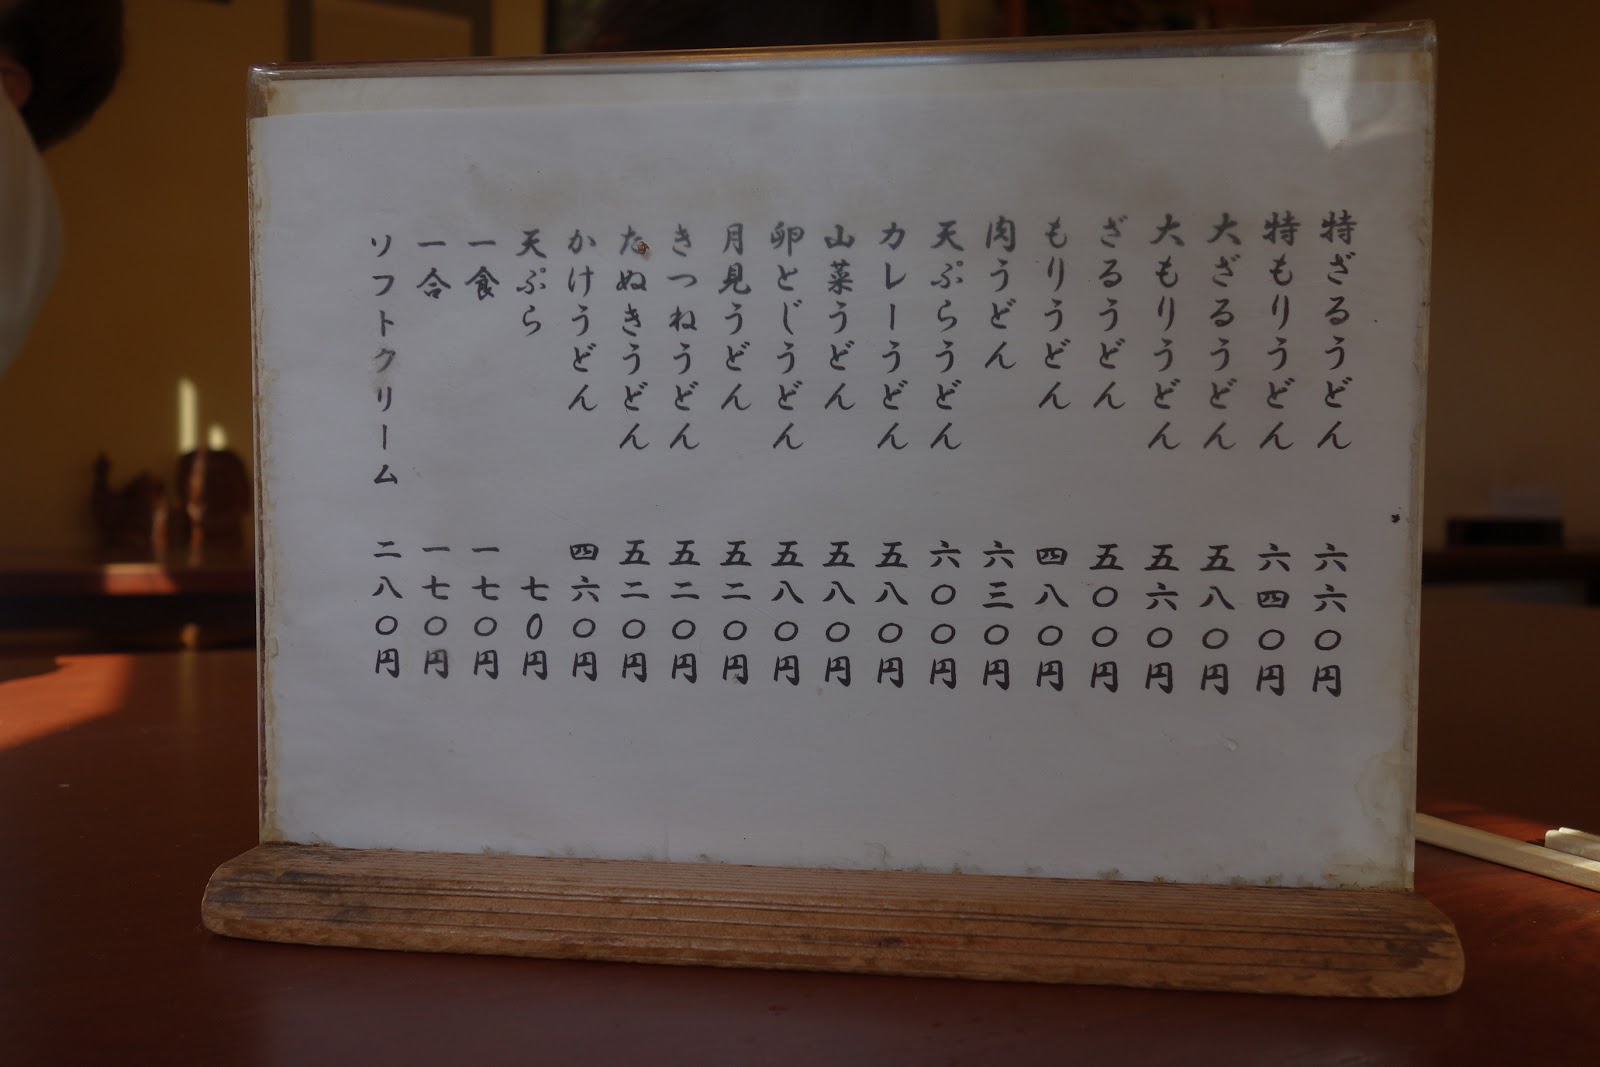 特ざるうどん 六六〇円
特もりうどん 六四〇円
大ざるうどん 五八〇円
大もりうどん 五六〇円
ざるうどん 五〇〇円
もりうどん 四八〇円
肉うどん 六三〇円
天ぷらうどん 六〇〇円
カレーうどん 五八〇円
山菜うどん 五八〇円
卵とじうどん 五八〇円
月見うどん 五二〇円
きつねうどん 五二〇円
たぬきうどん 五二〇円
かけうどん 四六〇円
天ぷら 七0円
一食 一七〇円
一合 一七〇円
ソフトクリーム 二八〇円